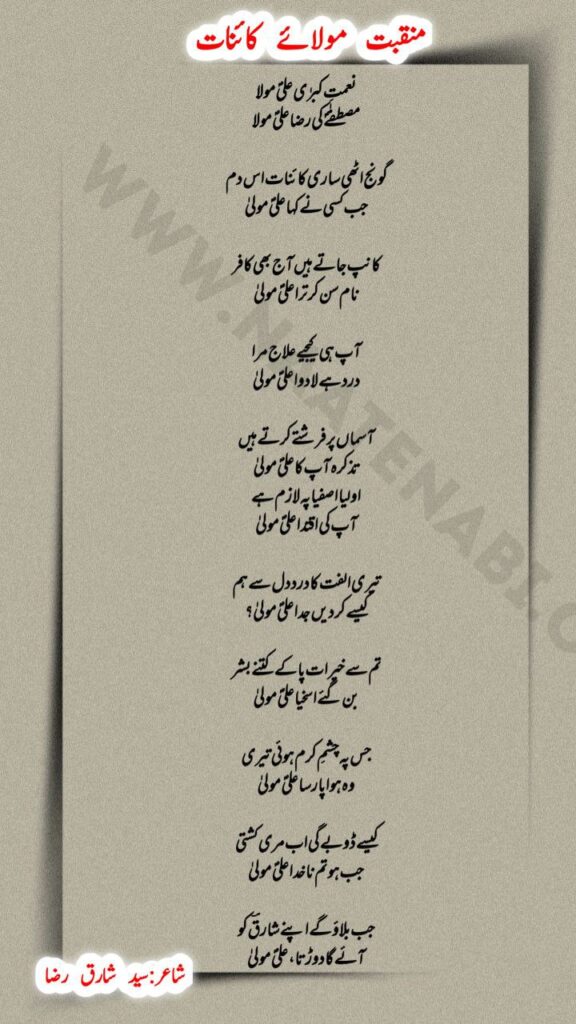 منقبت مولائے کائنات
نعمتِ کبرٰی علیؑ مولا
مصطفیٰؐ کی رضا علیؑ مولا
گونج اٹھی ساری کائنات اس دم
جب کسی نے کہا علیؑ مولیٰ
کانپ جاتے ہیں آج بھی کافر
نام سن کر ترا علیؑ مولیٰ
آپ ہی کیجیے علاج مرا
درد ہے لادوا علیؑ مولیٰ
آسماں پر فرشتے کرتے ہیں
تذکرہ آپ کا علیؑ مولیٰ
اولیا اصفیا پہ لازم ہے
آپ کی اقتدا علیؑ مولیٰ
تیری الفت کا درد دل سے ہم
کیسے کر دیں جدا علیؑ مولیٰ؟
تم سے خیرات پا کے کتنے بشر
بن گئے اسخیا علیؑ مولیٰ
جس پہ چشمِ کرم ہوئی تیری
وہ ہوا پارسا علیؑ مولیٰ
کیسے ڈوبے گی اب مری کشتی
جب ہو تم ناخدا علیؑ مولیٰ
جب بلاؤ گے اپنے شارقؔ کو
آئے گا دوڑتا، علیؑ مولیٰ
شاعر:سید شارق رضا